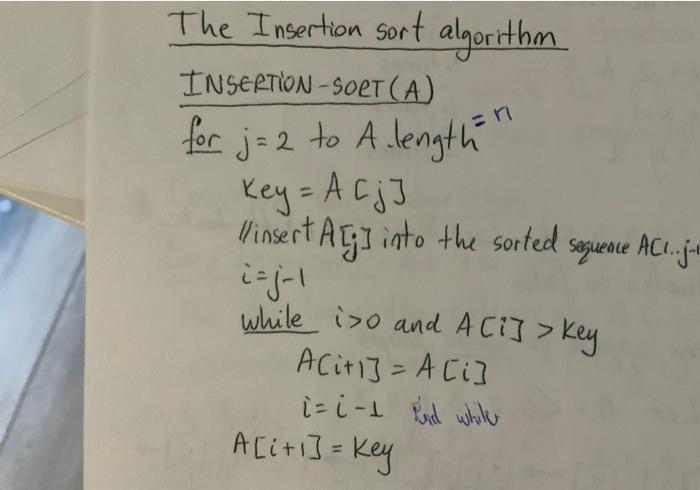 The Insertion sort algorithm
INSERTION-SORT(A)
for j=2 to A.length = n
Key = A[j]
//insert A[j] into the sorted sequence A[1..j-1
i=j-1
while i>0 and A[i] > Key
A[i+1] = A[i]
i=i-1 End while
A[i+1] = Key